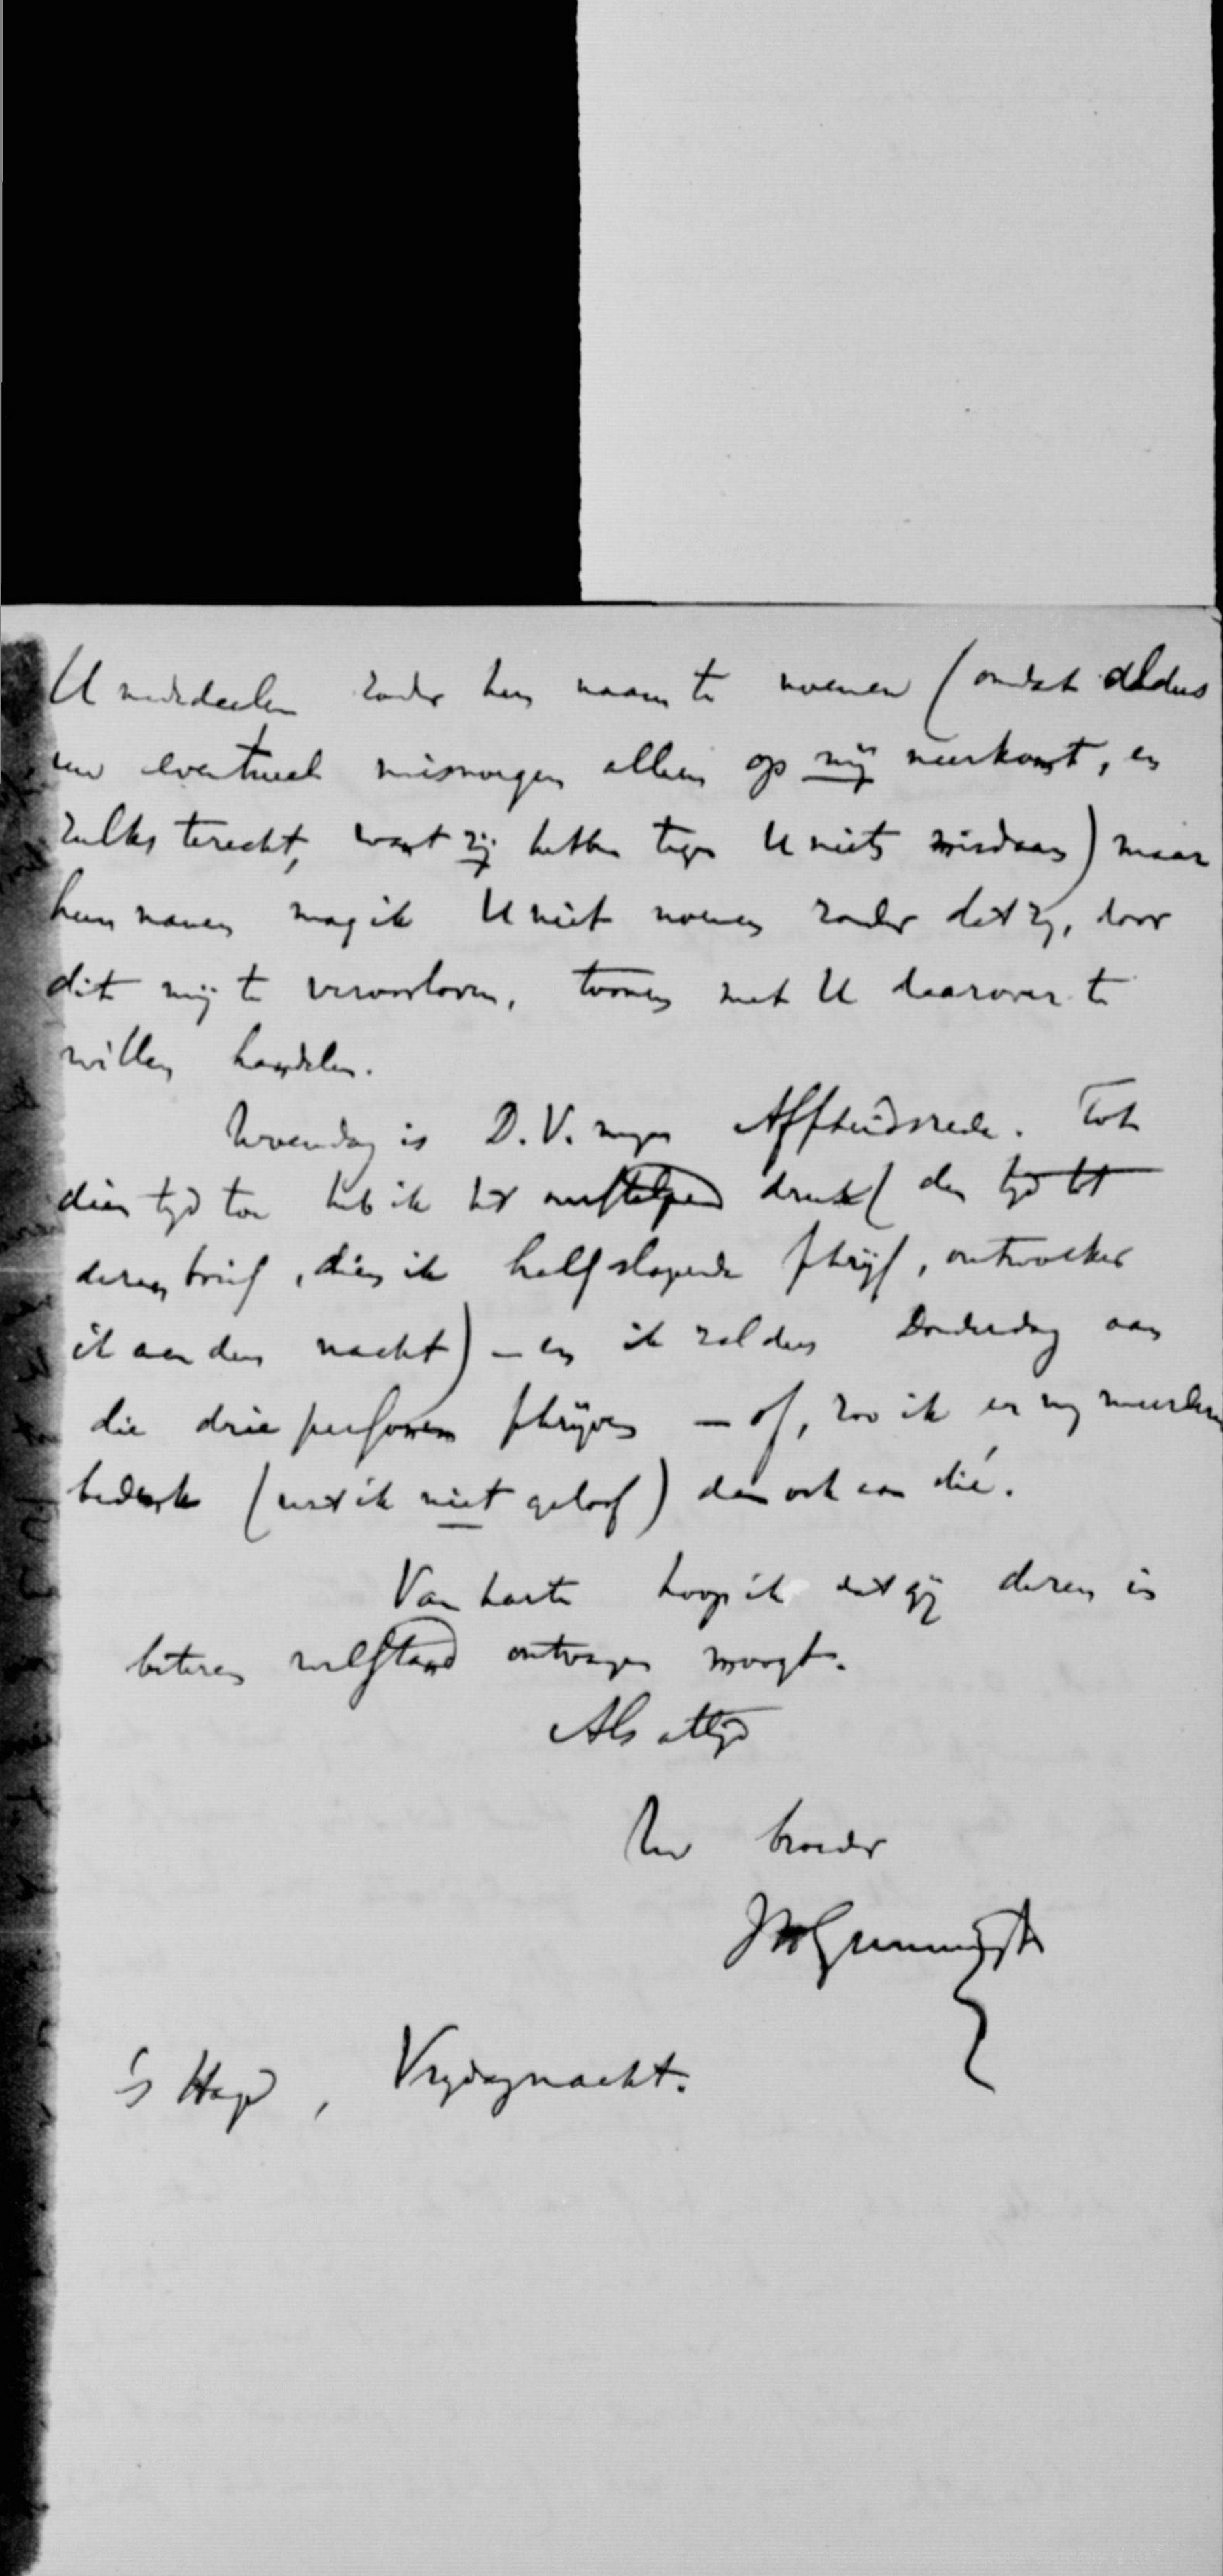 U mededeelen zonder hun naam te noemen (omdat aldus
uw eventueel misnoegen alleen op mij neerkomt, en
zulks terecht, want zij hebben tegen U niets misdaan) maar
hun namen mag ik U niet noemen zonder dat zij, door
dit mij te veroorloven, toonen met U daarover te
willen handelen.
Woensdag is D.V. mijn Afscheidsrede. Tot
dien tijd toe heb ik het ontstelpend druk (den tijd tot
dezen brief, dien ik half slapende schrijf, ontwoeker
ik aan den nacht) – en ik zal dus Donderdag aan
die drie personen schrijven – of, zoo ik er nog meerdere
bedenk (wat ik niet geloof) dan ook aan die.
Van harte hoop ik dat gij dezen in
beteren welstand ontvangen moogt.
Als altijd
Uw broeder
JHGunningJr
's Hage, Vrijdagnacht.